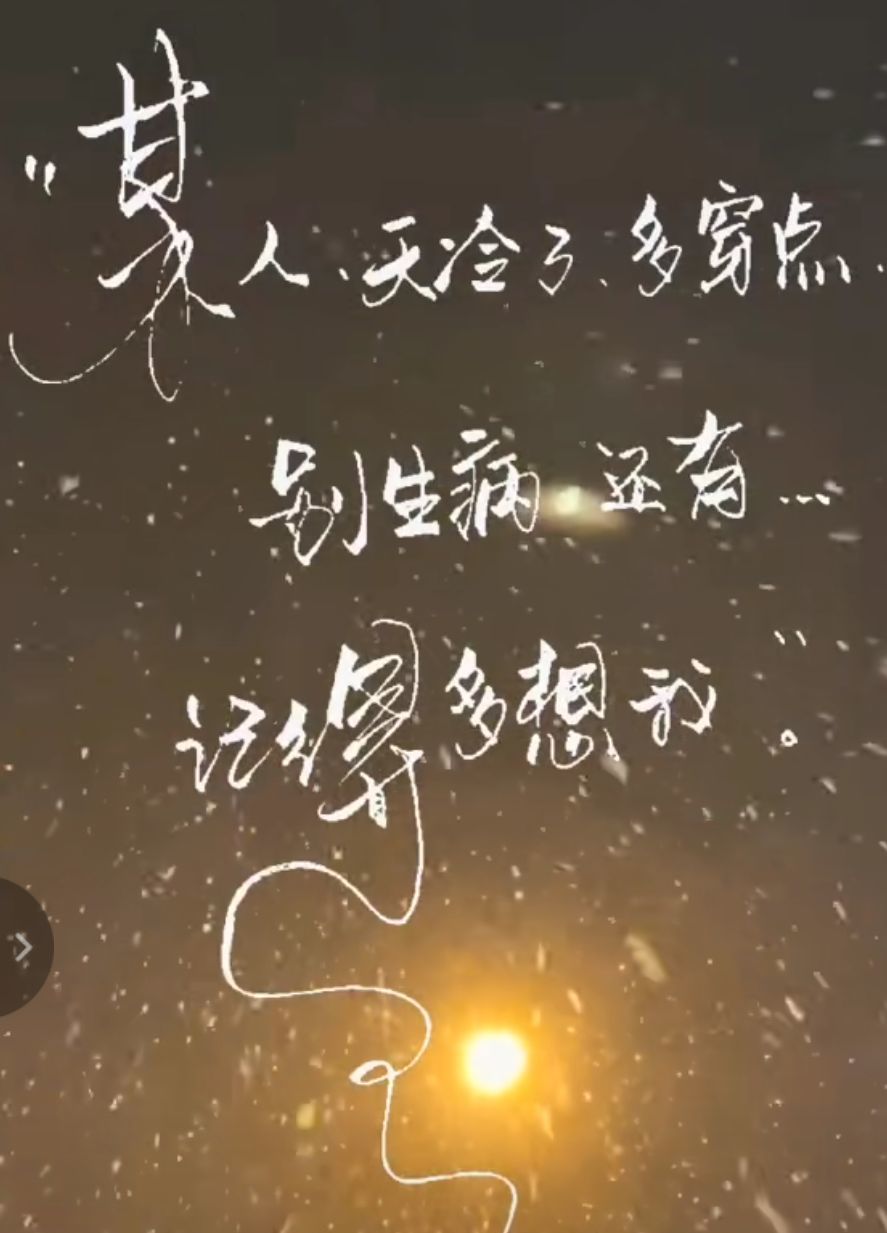 “某人、天冷了、多穿点.
别生病 还有...
记得多想我”。